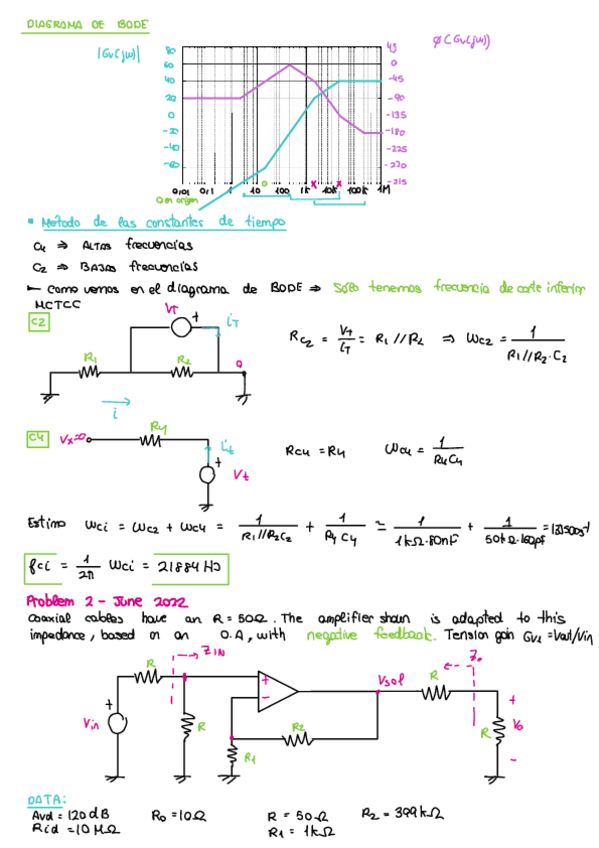 DIAGRAMA DE BODE
|Gv(jω)|
ϕ(Gv(jω))
80 45
60 0
40 -45
20 -90
0 -135
-20 -180
-40 -225
-60 -270
-315
0,01 0,1 1 10 100 1k 10k 100k 1M
0 en origen
* Método de las constantes de tiempo
C4 ⇒ ALTAS frecuencias
C2 ⇒ BAJAS frecuencias
Como vemos en el diagrama de BODE ⇒ Sólo tenemos frecuencia de corte inferior
MCTCC
VT
+
iT
C2
R1
R2
0
i
RC2 = VT/iT = R1//R2 ⇒ ωC2 = 1/(R1//R2·C2)
C4
Vx=0
R4
it
+
Vt
RC4 = R4
ωC4 = 1/(R4C4)
Estimo ωci = ωC2 + ωC4 = 1/(R1//R2C2) + 1/(R4C4) = 1/(1kΩ·80nF) + 1/(50kΩ·160pF)
fci = 1/2π ωci = 21884 Hz
Problem 2 - June 2022
Coaxial cables have an R = 50Ω. The amplifier shown is adapted to this
impedance, based on an O.A, with negative feedback. Tension gain GVL = Vout/Vin
R
ZIN
Vsol
R
Zo
+
Vin
R
+
-
R2
R1
R
+
Vo
-
DATA:
Avd = 120 dB
Ro = 10Ω
R = 50Ω
R2 = 399kΩ
Rid = 10 MΩ
R1 = 1kΩ